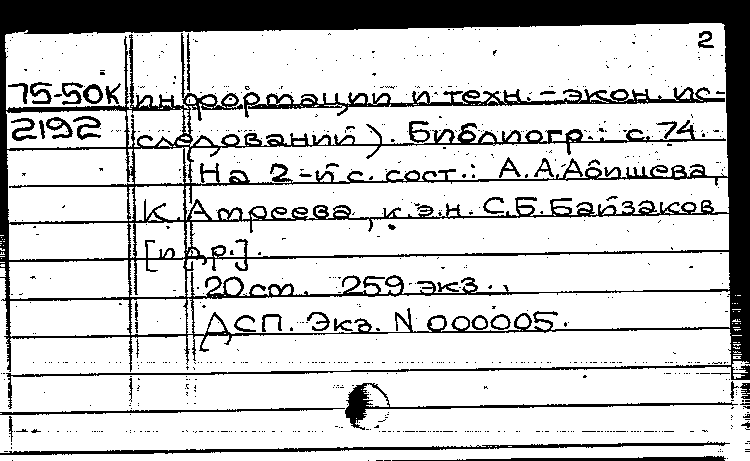 2
75-50К информации и техн.-экон. ис-
2192 следований). Библиогр.: с. 74.-
На 2-й с. сост.: А.А.Абишева,
К. Атреева, к.э.н. С.Б.Байзаков
[и др.].
20 cm. 259 экз.,
ДСП. Экз. N 000005.